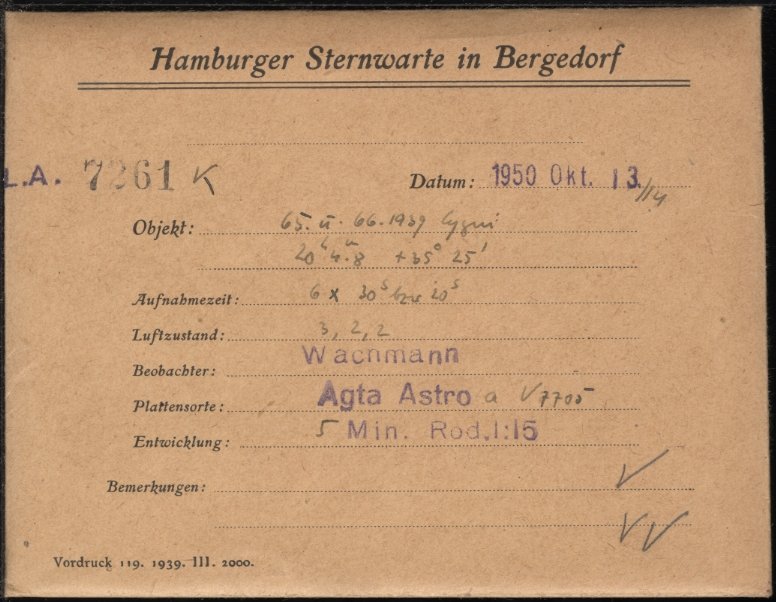 Hamburger Sternwarte in Bergedorf
L.A. 7261 K
Datum: 1950 Okt. 13./14
Objekt: 65. u. 66.1939 Cygni
20h 4m.8 +35° 25'
Aufnahmezeit: 6 x 30s bzw 20s
Luftzustand: 3, 2, 2
Beobachter: Wachmann
Plattensorte: Agfa Astro a V7705
Entwicklung: 5 Min. Rod.1:15
Bemerkungen:
Vordruck 119. 1939. III. 2000.